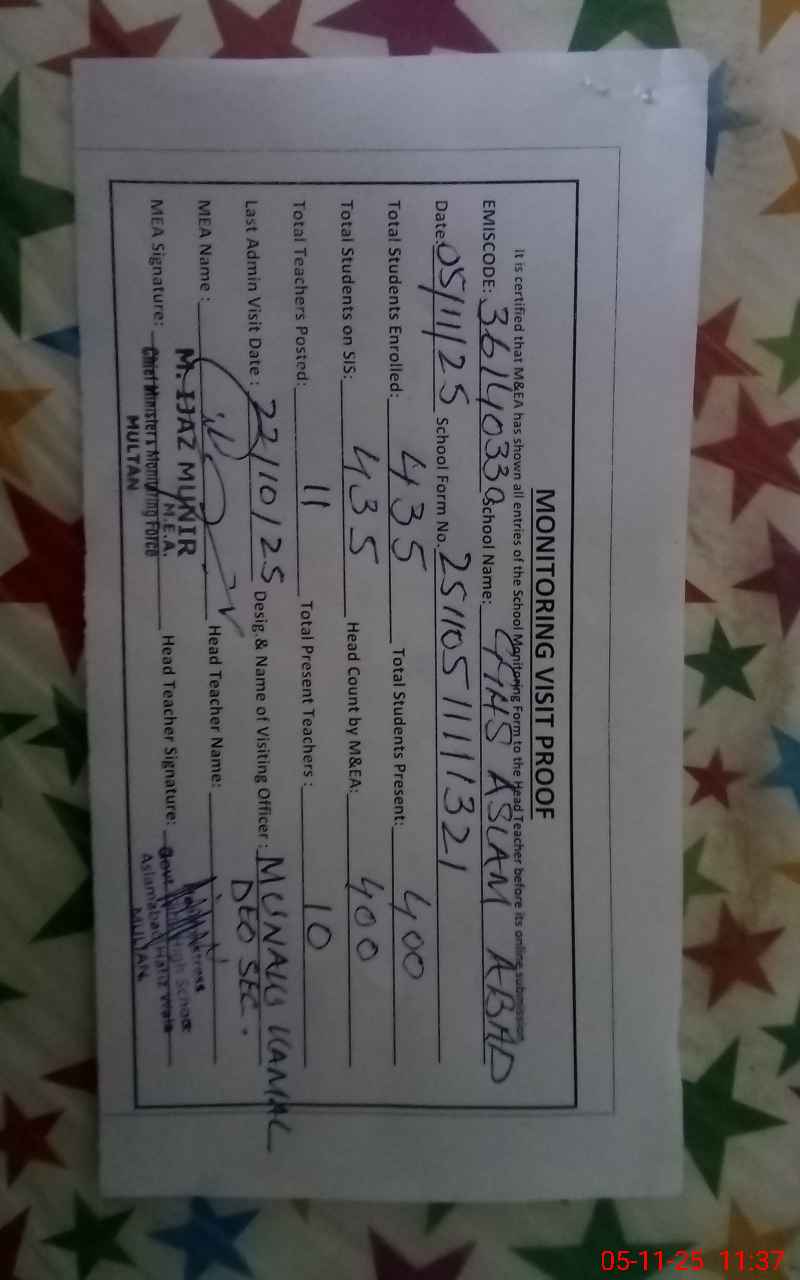 MONITORING VISIT PROOF
It is certified that M&EA has shown all entries of the School Monitoring Form to the Head Teacher before its online submission
EMISCODE: 36140339 School Name: GGHS ASLAM ABAD
Date: 05/11/25 School Form No. 251105111111321
Total Students Enrolled: 435 Total Students Present: 400
Total Students on SIS: 435 Head Count by M&EA: 400
Total Teachers Posted: 11 Total Present Teachers: 10
Last Admin Visit Date: 22/10/25 Desig.& Name of Visiting Officer: KAMAL
DEO SEC.
MEA Name: Head Teacher Name:
M. IJAZ MUNIR
M.E.A.
MEA Signature: Head Teacher Signature:
Chief Minister's Monitoring Force
MULTAN
Govt. High School
Aslamabad
MULTAN
05-11-25 11:37